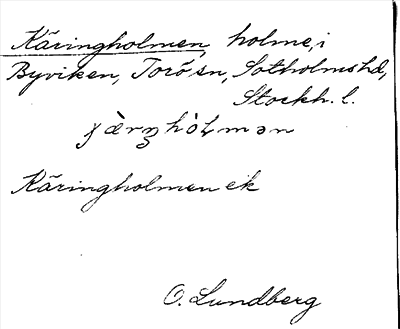 Käringholmen, holme, i
Byviken, Torö sn, Sotholms hd,
Stockh. l.
Käringholmen ek
O. Lundberg